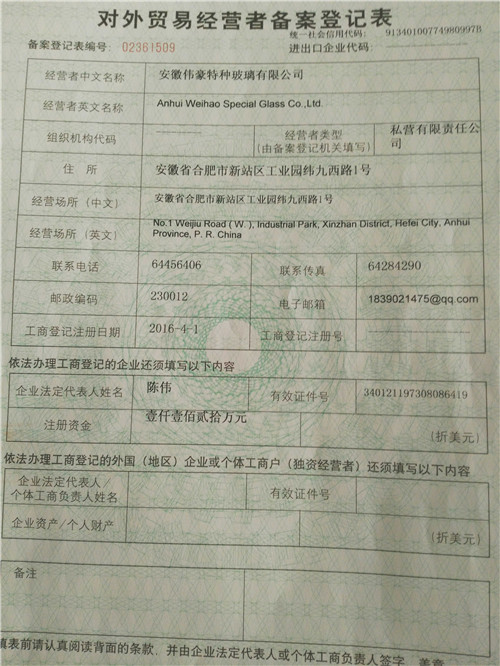 对外贸易经营者备案登记表
统一社会信用代码: 91340100774980997B
备案登记表编号: 02361509 进出口企业代码:
经营者中文名称 安徽伟豪特种玻璃有限公司
经营者英文名称 Anhui Weihao Special Glass Co.,Ltd.
组织机构代码 经营者类型 (由备案登记机关填写) 私营有限责任公司
住 所 安徽省合肥市新站区工业园纬九西路1号
经营场所(中文) 安徽省合肥市新站区工业园纬九西路1号
经营场所(英文) No.1 Weijiu Road ( W. ), Industrial Park, Xinzhan District, Hefei City, Anhui
Province, P. R. China
联系电话 64456406 联系传真 64284290
邮政编码 230012 电子邮箱 1839021475@qq.com
工商登记注册日期 2016-4-1 工商登记注册号
依法办理工商登记的企业还须填写以下内容
企业法定代表人姓名 陈伟 有效证件号 340121197308086419
注册资金 壹仟壹佰贰拾万元 (折美元)
依法办理工商登记的外国(地区)企业或个体工商户(独资经营者)还须填写以下内容
企业法定代表人/
个体工商负责人姓名 有效证件号
企业资产/个人财产 (折美元)
备注
填表前请认真阅读背面的条款,并由企业法定代表人或个体工商负责人签字、盖章